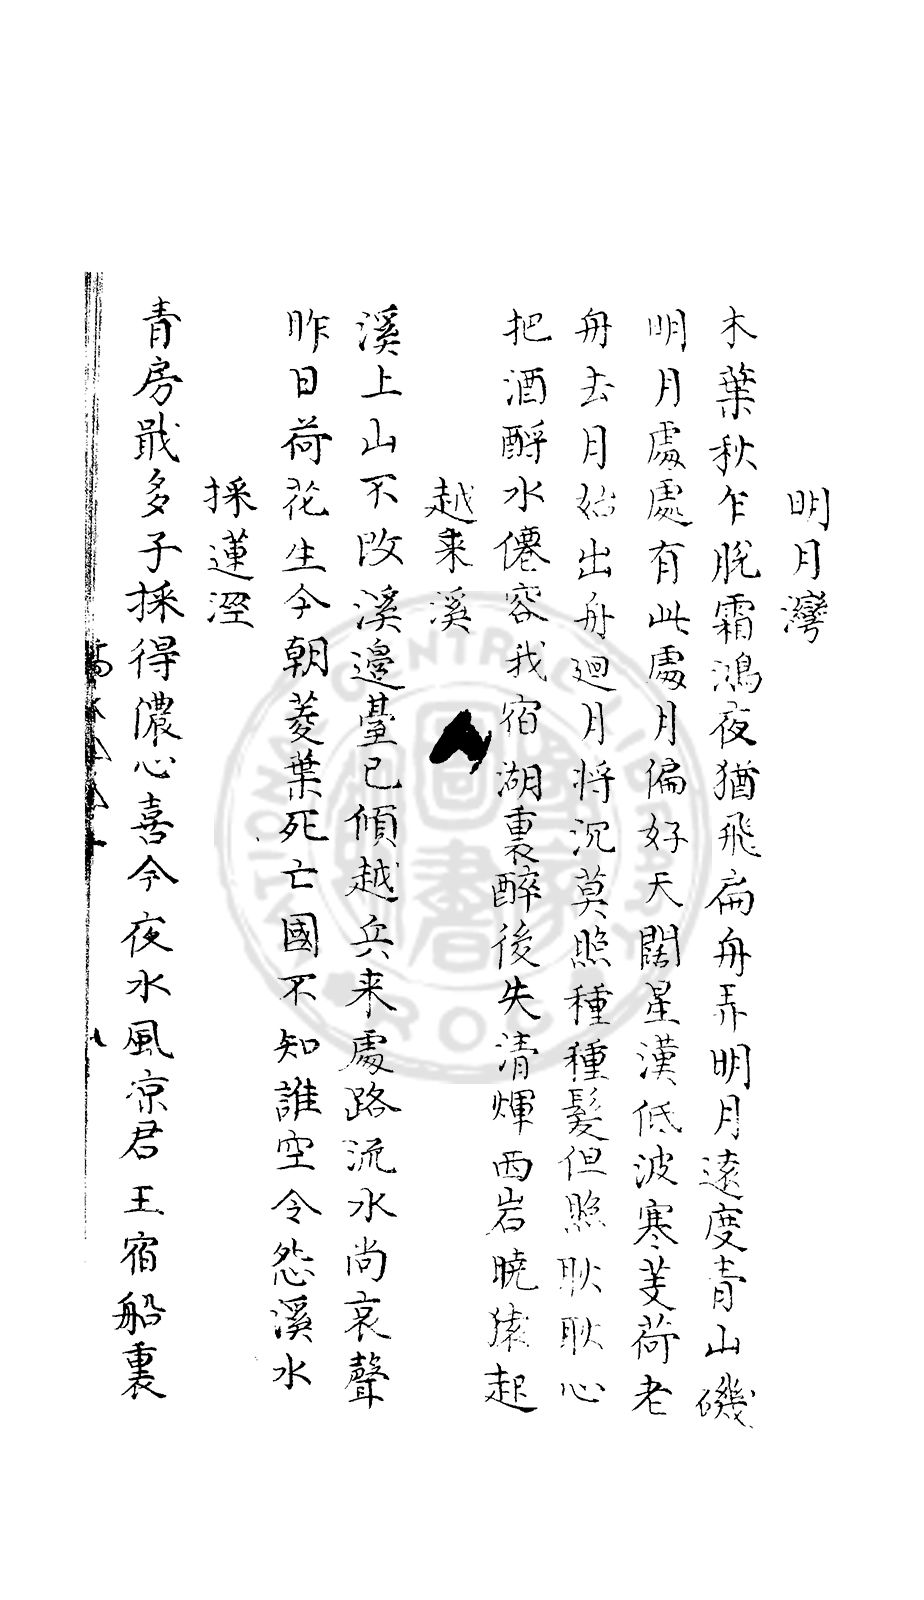 明月灣
木葉秋乍脫霜鴻夜猶飛扁舟弄明月遠度青山磯
明月處處有此處月偏好天闊星漢低波寒芰荷老
舟去月始出舟迴月將沉莫照種種髮但照耿耿心
把酒酹水僊容我宿湖裏醉後失清輝西岩曉猿起
越来溪
溪上山不改溪邊臺已傾越兵来處路流水尚哀聲
昨日荷花生今朝菱葉死亡國不知誰空令怨溪水
採蓮涇
青房戢多子採得儂心喜今夜水風凉君王宿船裏